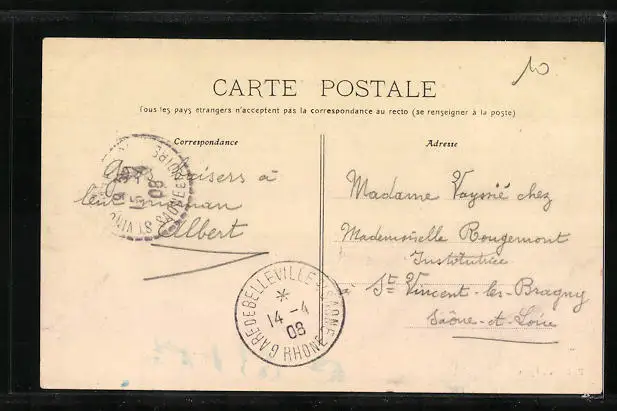 10
CARTE POSTALE
Tous les pays étrangers n'acceptent pas la correspondance au recto (se renseigner à la poste)
Correspondance
Gros baisers à
leur maman
Albert
Adresse
Madame Vayssié chez
Mademoiselle Rougemont
Institutrice
à St Vincent-les-Bragny
Saône-et-Loire
GARE DE BELLEVILLE-S-SAONE
*
14 -4
08
RHONE
15 -4
08
ST VIN
SAONE ET LOIRE